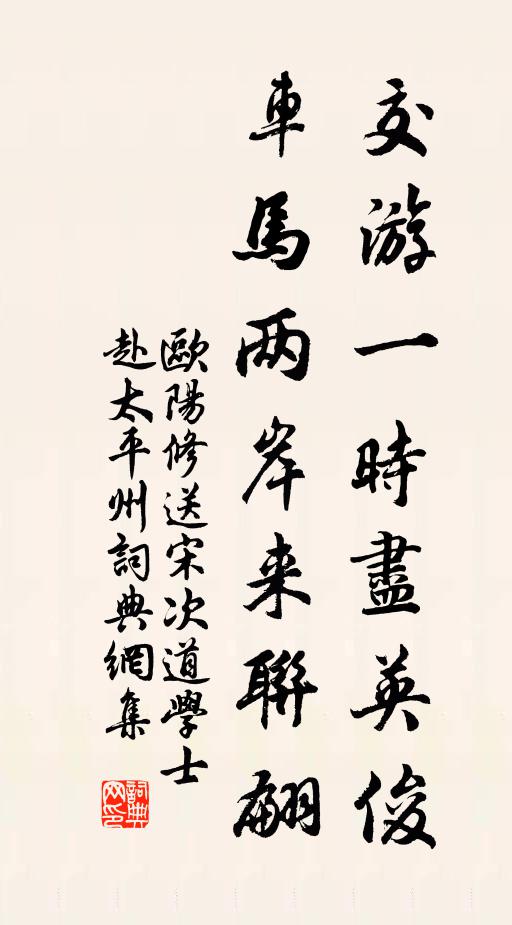 交游一時盡英俊
車馬两岸来聯翩
歐陽修送宋次道學士
赴太平州詞典網集
詞典网印